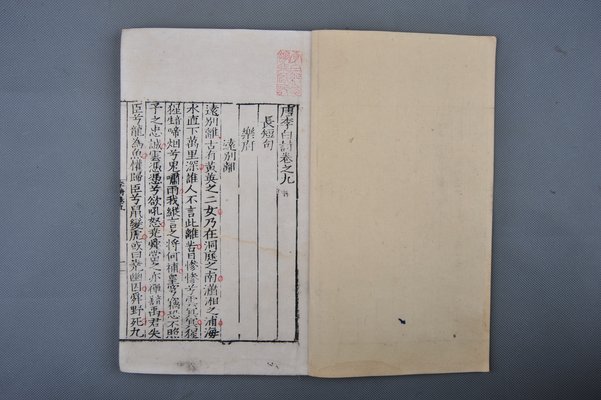 唐李白詩卷之九
長短句
樂府
遠別離
遠別離古有黃英之二女乃在洞庭之南瀟湘之浦海
水直下萬里深誰人不言此離苦日慘慘兮雲冥冥猩
猩啼烟兮鬼嘯雨我縱言之將何補皇穹竊恐不照
予之忠誠雲憑憑兮欲吼怒堯舜當之亦禪禹君失
臣兮龍為魚權歸臣兮鼠變虎或曰堯幽囚舜野死九